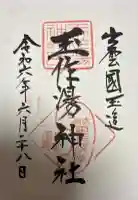 出雲國玉造
玉作湯神社
令和六年六月二十八日